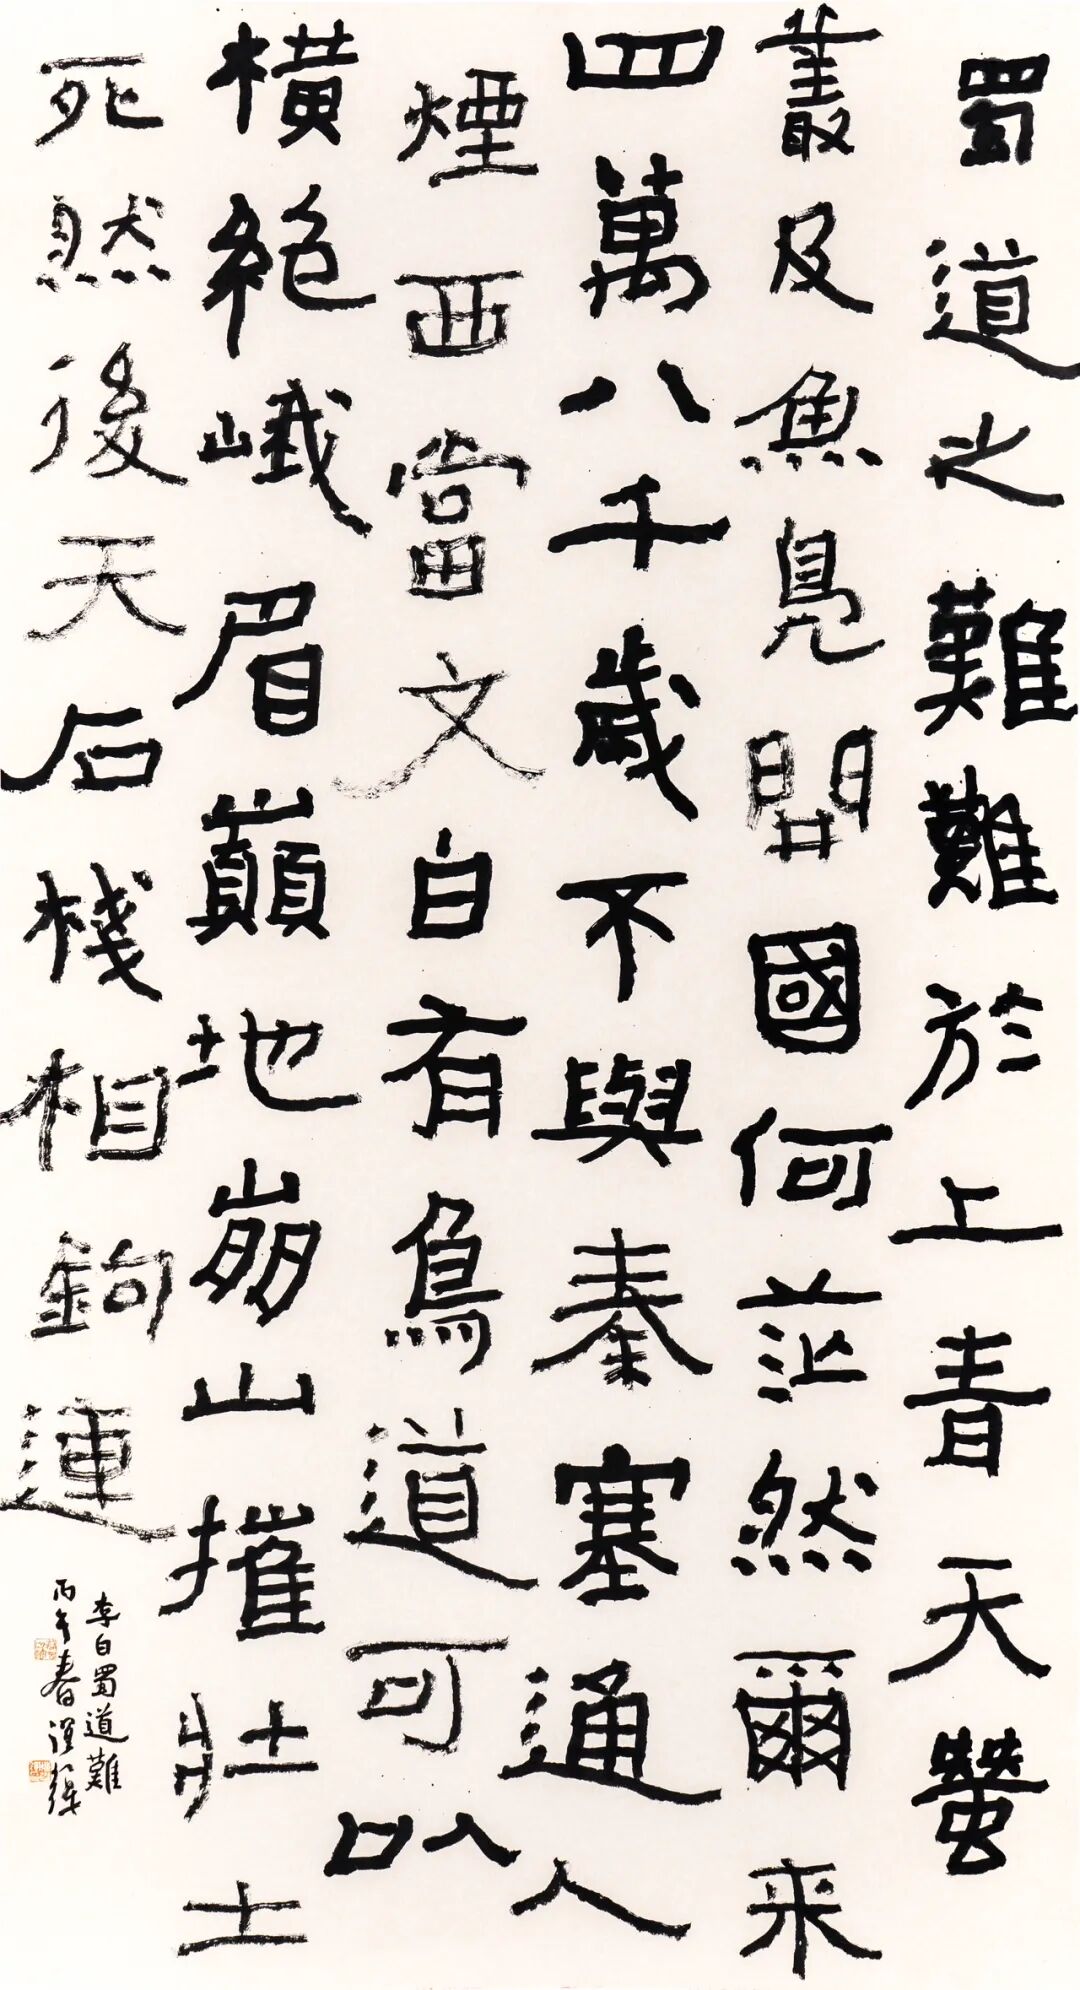 蜀道之難難於上青天蠶
叢及魚鳧開國何茫然爾來
四萬八千歲不與秦塞通人
煙西當文白有鳥道可以
橫絕峨眉巔地崩山摧壯士
死然後天石棧相鉤連
李白蜀道難
丙午春